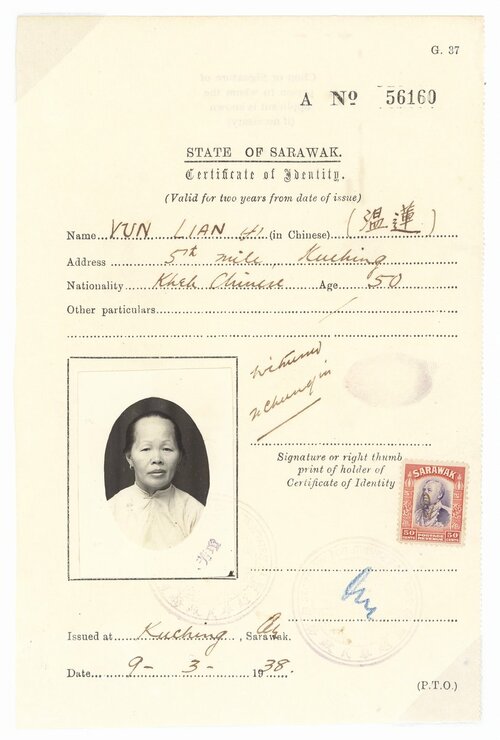 G. 37
A Nº 56160
STATE OF SARAWAK.
Certificate of Identity.
(Valid for two years from date of issue)
Name VUN LIAN (in Chinese) (温蓮)
Address 5th mile, Kuching
Nationality Kheh Chinese Age 50
Other particulars
Signature or right thumb
print of holder of
Certificate of Identity
SARAWAK
50 POSTAGE REVENUE 50
CENTS CENTS
Issued at Kuching, Sarawak.
Date 9-3-1938.
(P.T.O.)